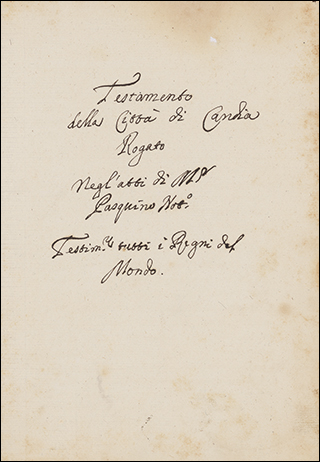 Testamento
della Città di Candia
Rogato
Negl'atti di Mr
Pasquino Nott.o
Testim.ij tutti i Regni del
Mondo.